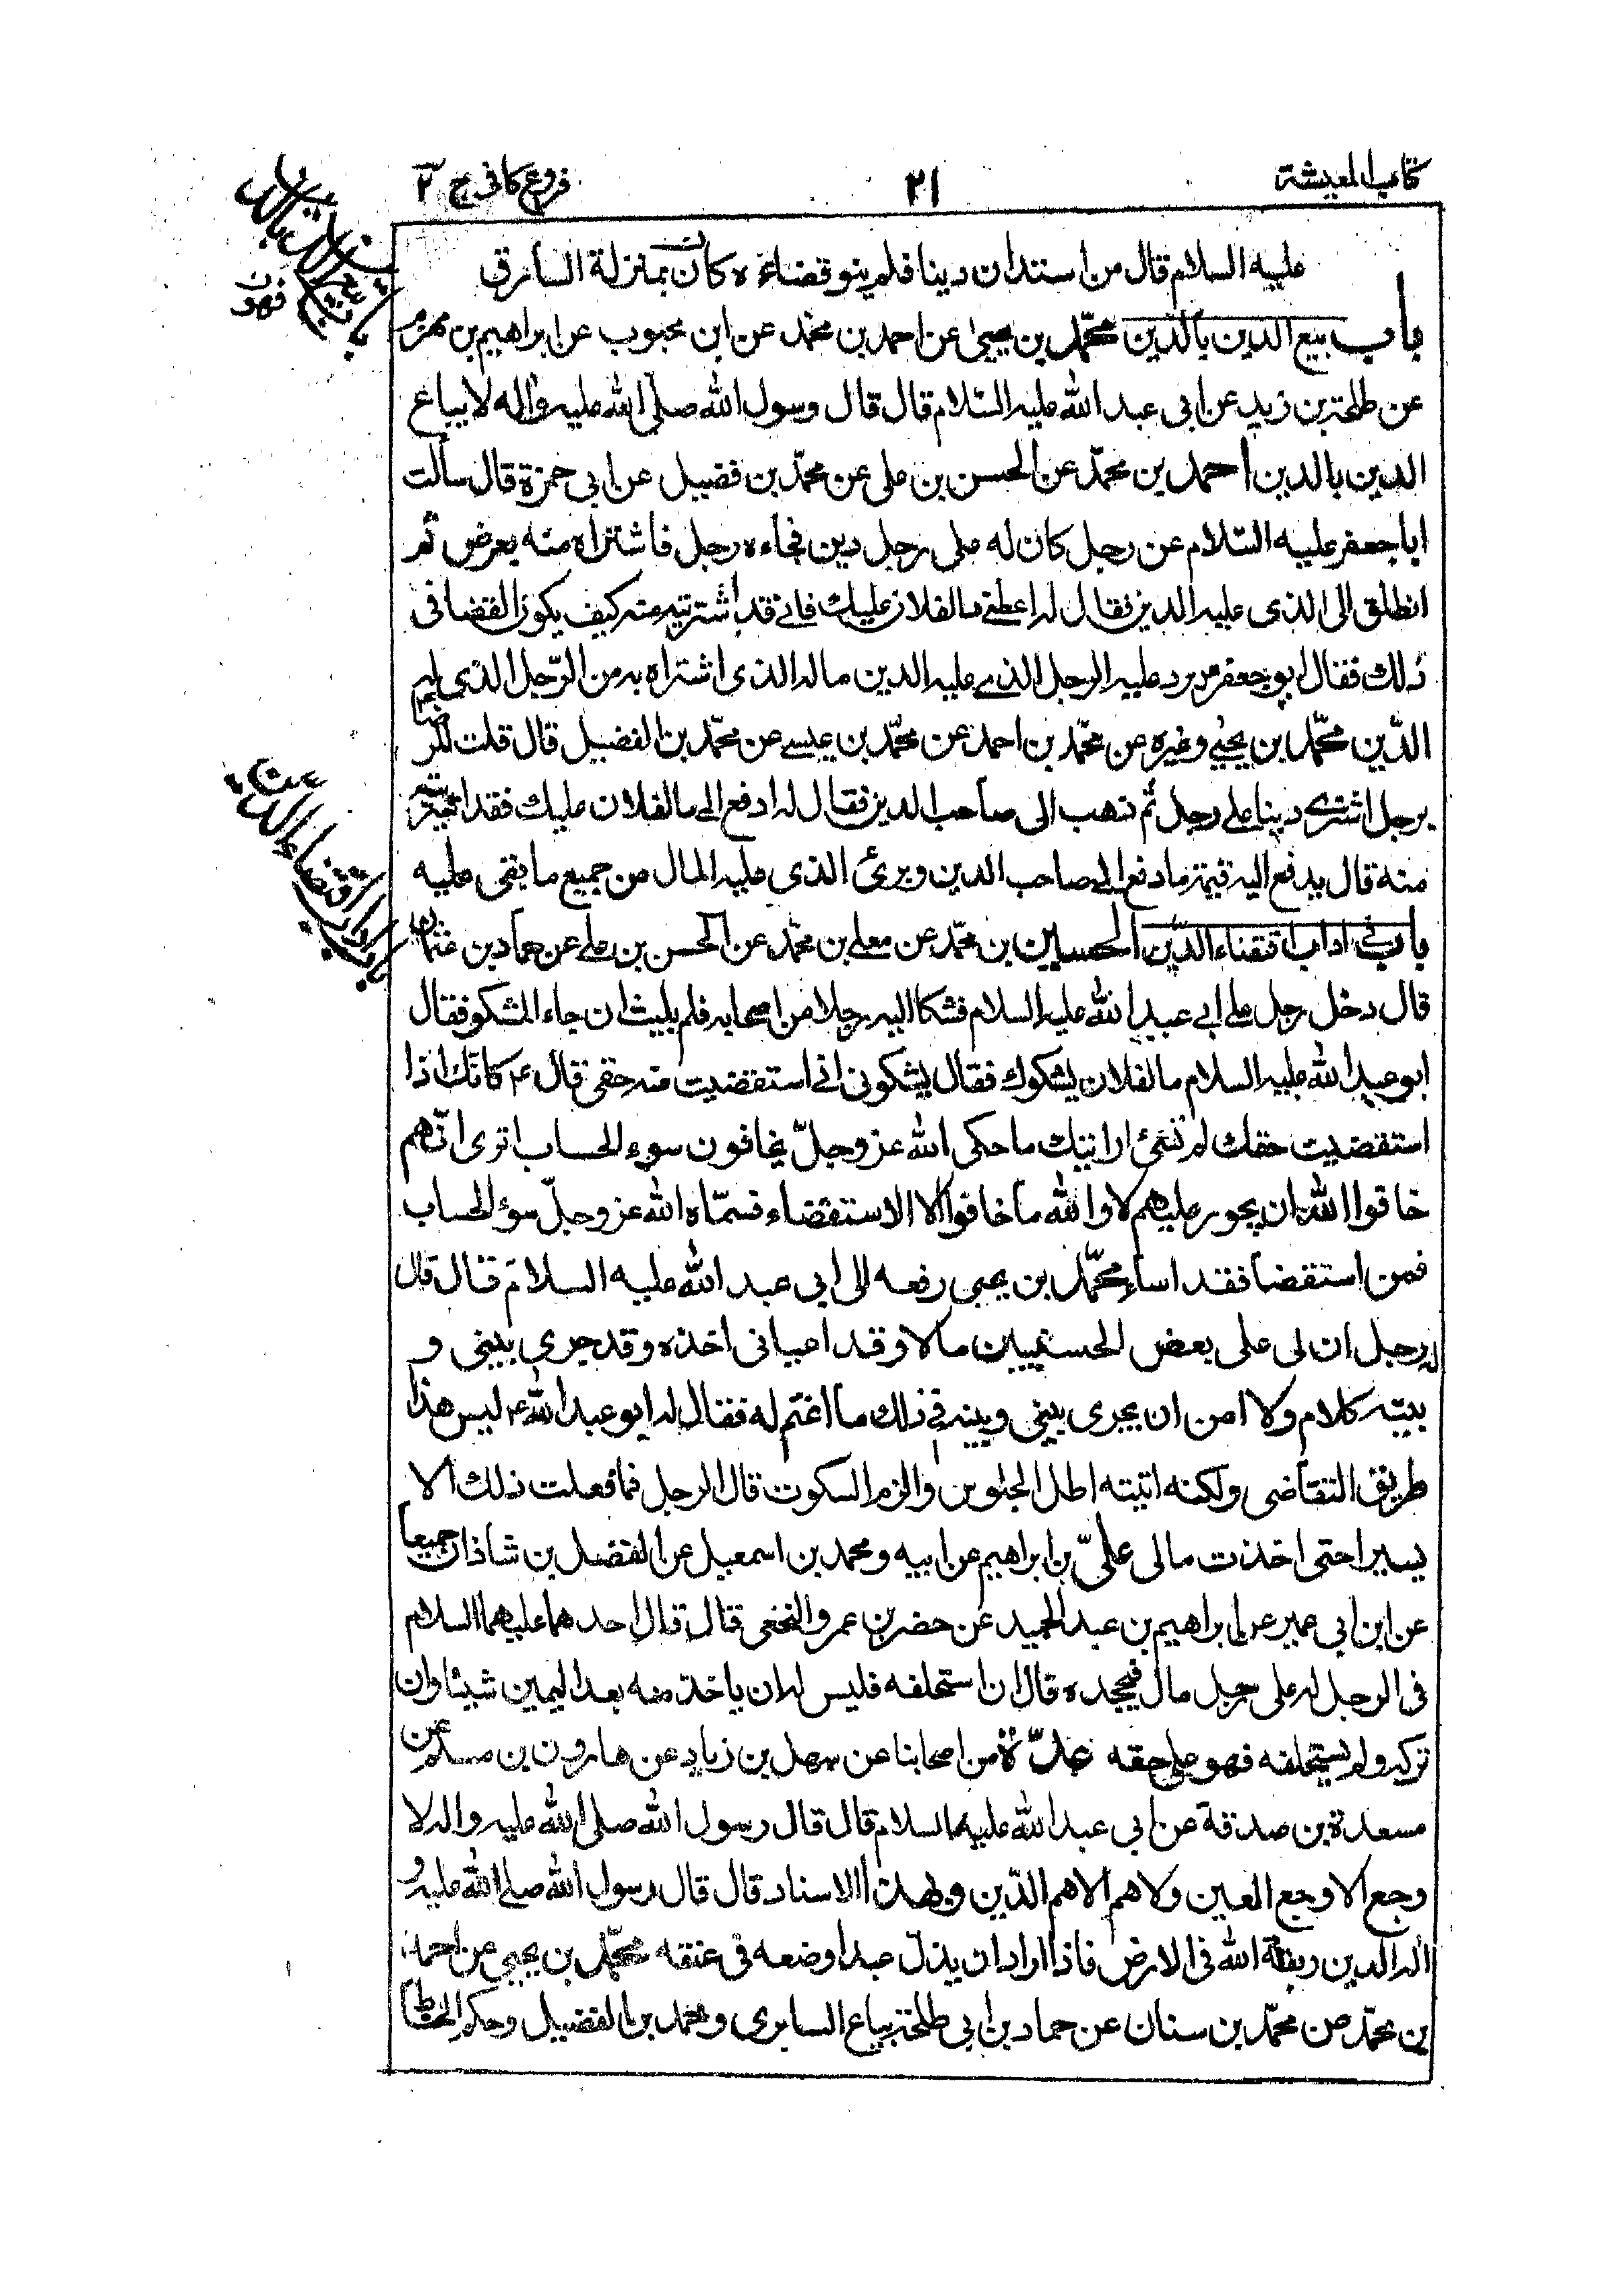 كتاب المعيشة ٢١ فروع كافى ج ٢
عليه السلام قال من استدان دينا فلم ينو قضاءه كان بمنزلة السارق
باب بيع الدين بالدين محمد بن يحيى عن احمد بن محمد عن ابن محبوب عن ابراهيم بن مهزم
عن طلحة بن زيد عن ابى عبد الله عليه السلام قال قال رسول الله صلى الله عليه واله لا يباع
الدين بالدين احمد بن محمد عن الحسن بن على عن محمد بن فضيل عن ابى حمزة قال سألت
ابا جعفر عليه السلام عن رجل كان له على رجل دين فجاءه رجل فاشتراه منه بعرض ثم
انطلق الى الذى عليه الدين فقال له اعطنى ما لفلان عليك فانى قد اشتريته منه كيف يكون القضا فى
ذلك فقال ابو جعفر يرد عليه الرجل الذى عليه الدين ماله الذى اشتراه به من الرّجل الذى له
الدّين محمّد بن يحيى وغيره عن محمّد بن احمد عن محمّد بن عيسى عن محمّد بن الفضيل قال قلت للرضا
رجل اشترى دينا على رجل ثم ذهب الى صاحب الدين فقال له ادفع الى ما لفلان عليك فقد اشتريته
منه قال يدفع اليه قيمة ما دفع الى صاحب الدين وبرئ الذى عليه المال من جميع ما بقى عليه
باب فى اداب اقتضاء الدّين الحسين بن محمّد عن معلى بن محمّد عن الحسن بن على عن حماد بن عثمان
قال دخل رجل على ابى عبد الله عليه السلام فشكا اليه رجلا من اصحابه فلم يلبث ان جاء المشكو فقال
ابو عبد الله عليه السلام ما لفلان يشكوك فقال يشكونى انى استقضيت منه حقى قال ع كانك اذا
استقضيت حقك لم تسئ ارايتك ما حكى الله عز وجلّ يخافون سوء الحساب اترى انّهم
خافوا الله ان يجور عليهم لا والله ما خافوا الا الاستقضاء فسمّاه الله عز وجلّ سوء الحساب
فمن استقضا فقد اساء محمّد بن يحيى رفعه الى ابى عبد الله عليه السلام قال قال
له رجل ان لى على بعض الحسنيين مالا وقد اعيانى اخذه وقد جرى بينى و
بينه كلام ولا امن ان يجرى بينى وبينه فى ذلك ما اغتم له فقال له ابو عبد الله ع ليس هذا
طريق التقاضى ولكنه اتيته اطل الجلوس والزم السكوت قال الرجل فما فعلت ذلك الا
يسيرا حتى اخذت مالى علىّ بن ابراهيم عن ابيه ومحمد بن اسمعيل عن الفضل بن شاذان جميعا
عن ابن ابى عمير عن ابراهيم بن عبد الحميد عن خضر بن عمرو النخعى قال قال احدهما عليهما السلام
فى الرجل له على رجل مال فيجحده قال ان استحلفه فليس له ان ياخذ منه بعد اليمين شيئا وان
تركه ولم يستحلفه فهو على حقه عدّة من اصحابنا عن سهل بن زياد عن هارون بن مسلم عن
مسعدة بن صدقة عن ابى عبد الله عليه السلام قال قال رسول الله صلى الله عليه واله لا
وجع الا وجع العين ولا هم الا هم الدّين وبهذا الاسناد قال قال رسول الله صلى الله عليه و
اله الدين ربقة الله فى الارض فاذا اراد ان يذلّ عبدا وضعه فى عنقه محمّد بن يحيى عن احمد
بن محمّد عن محمّد بن سنان عن حماد بن ابى طلحة بياع السابرى ومحمد بن الفضيل وحكم الحناط
باب بيع الدين بالدين
باب فى اداب اقتضاء الدين